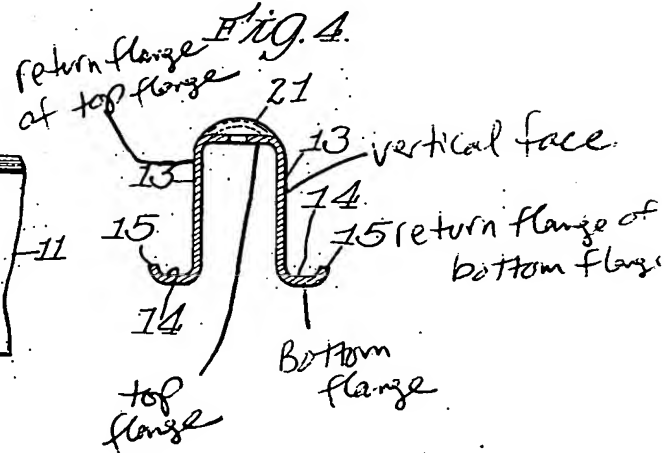 Fig. 4.
return flange
of top flange
21
13
vertical face
13
14
11
15
15 return flange of
bottom flange
14
Bottom
flange
top
flange